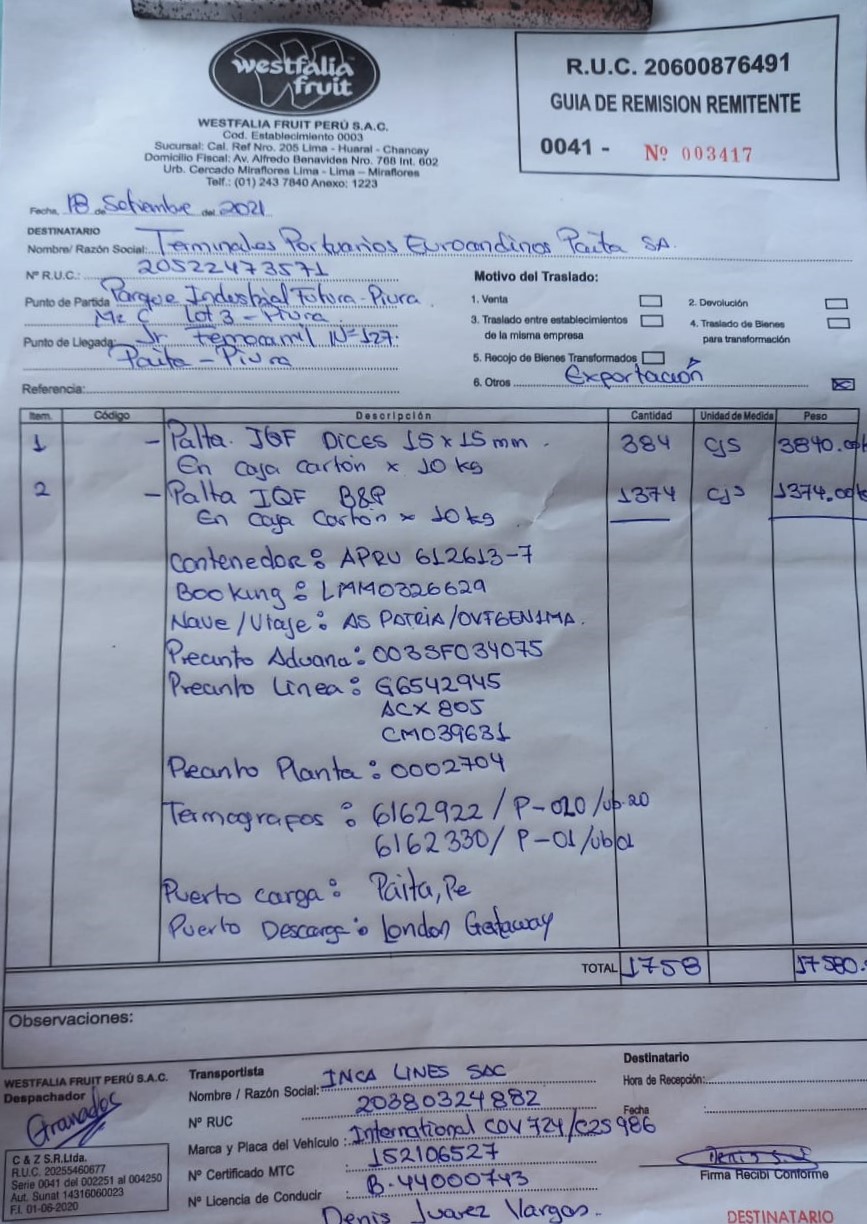 westfalia
fruit
WESTFALIA FRUIT PERÚ S.A.C.
Cod. Establecimiento 0003
Sucursal: Cal. Ref Nro. 205 Lima - Huaral - Chancay
Domicilio Fiscal: Av. Alfredo Benavides Nro. 768 Int. 602
Urb. Cercado Miraflores Lima - Lima – Miraflores
Telf.: (01) 243 7840 Anexo: 1223
R.U.C. 20600876491
GUIA DE REMISION REMITENTE
0041 - Nº 003417
Fecha, 18 de Setiembre del 2021
DESTINATARIO
Nombre/ Razón Social: Terminales Portuarios Euroandinos Paita SA.
Nº R.U.C.: 20522473571
Punto de Partida Parque Industrial Futura - Piura
Mz C Lot 3 - Piura
Punto de Llegada: Jr Ferrocarril Nº 127.
Paita - Piura
Referencia:
Motivo del Traslado:
1. Venta
2. Devolución
3. Traslado entre establecimientos
de la misma empresa
4. Traslado de Bienes
para transformación
5. Recojo de Bienes Transformados
6. Otros Exportación
Item. Código Descripción Cantidad Unidad de Medida Peso
1 - Palta. IQF Dices 15 x 15 mm. 384 cjs 3840.00k
En caja cartón x 10 kg
2 - Palta IQF B&P 1374 cjs 1374.00k
En caja cartón x 10 kg
Contenedor: APRU 612613-7
Booking: LMM0326629
Nave/Viaje: AS PATRIA/OVTGEN1MA.
Precinto Aduana: 003SF034075
Precinto Linea: G6542945
ACX 805
CM039631
Precinto Planta: 0002704
Termografos: 6162922 / P-020 /ub.20
6162330/ P-01 /ub 01
Puerto carga: Paita, Pe
Puerto Descarga: London Gateway
TOTAL 1758 17580.
Observaciones:
WESTFALIA FRUIT PERÚ S.A.C.
Despachador
Granados
C & Z S.R.Ltda.
R.U.C. 20255460677
Serie 0041 del 002251 al 004250
Aut. Sunat 14316060023
F.I. 01-06-2020
Transportista
Nombre / Razón Social: INCA LINES SAC
Nº RUC 20380324882
Marca y Placa del Vehículo: International COV 724/C2S 986
Nº Certificado MTC 152106527
Nº Licencia de Conducir B-44000743
Denis Juarez Vargas.
Destinatario
Hora de Recepción:
Fecha :
Firma Recibí Conforme
DESTINATARIO